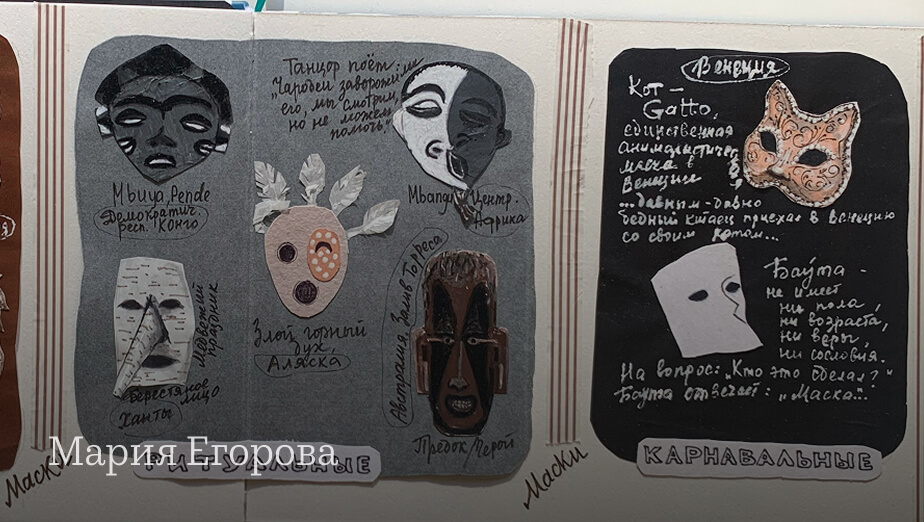 Танцор поёт:
"Чародеи заворожили
его, мы смотрим,
но не можем
помочь."
Mbuya Pende
Демократич.
респ. Конго
Mbangu Центр.
Африка
Злой горный
дух,
Аляска
Медвежий
праздник
Берестяное
лицо
Ханты
Австралия, Залив Торреса
Предок/Герой
Маски
РИТУАЛЬНЫЕ
Мария Егорова
Венеция
Кот –
Gatto,
единственная
анималистическ.
маска в
Венеции
...давным-давно
бедный китаец приехал в Венецию
со своим котом...
Баута –
не имеет
ни пола,
ни возраста,
ни веры,
ни сословия.
На вопрос: "Кто это сделал?"
Баута отвечает: "Маска..."
Маски
КАРНАВАЛЬНЫЕ